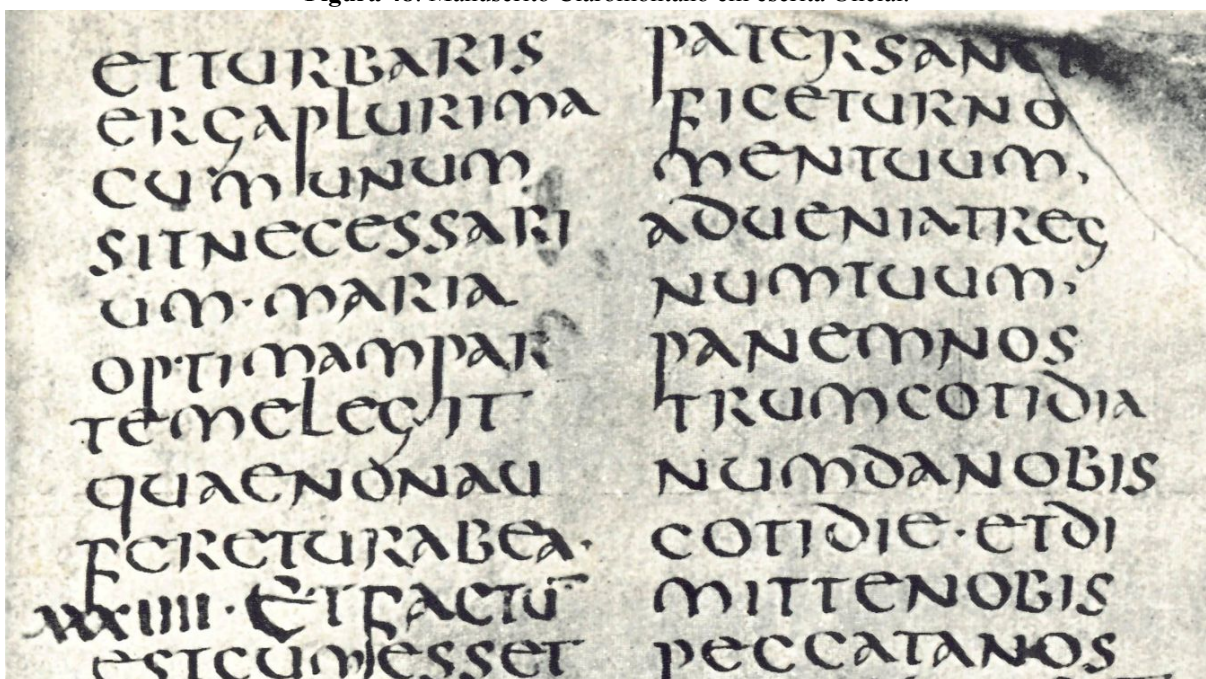 Figura Manuscrito Claromontano em escrita Uncial.
ETTURBARIS
ERGAPLURIMA
CUMUNUM
SITNECESSARI
UM·MARIA
OPTIMAMPAR
TEMELEGIT
QUAENONAU
FERETURABEA·
XXXIIII·ETFACTŪ
ESTCUMESSET
PATERSANCTI
FICETURNO
MENTUUM,
ADUENIATREG
NUMTUUM,
PANEMNOS
TRUMCOTIDIA
NUMDANOBIS
COTIDIE·ETDI
MITTENOBIS
PECCATANOS